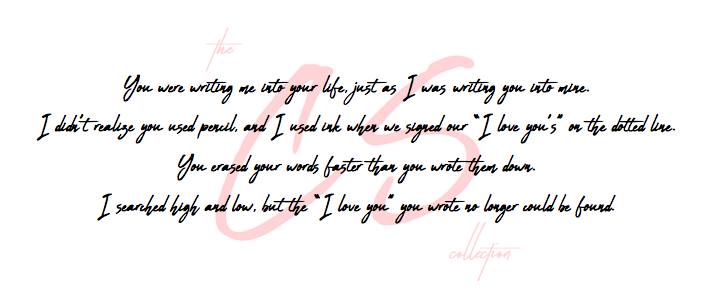 the
You were writing me into your life, just as I was writing you into mine.
I didn't realize you used pencil, and I used ink when we signed our "I love you's" on the dotted line.
You erased your words faster than you wrote them down.
I searched high and low, but the "I love you" you wrote no longer could be found.
CS
collection